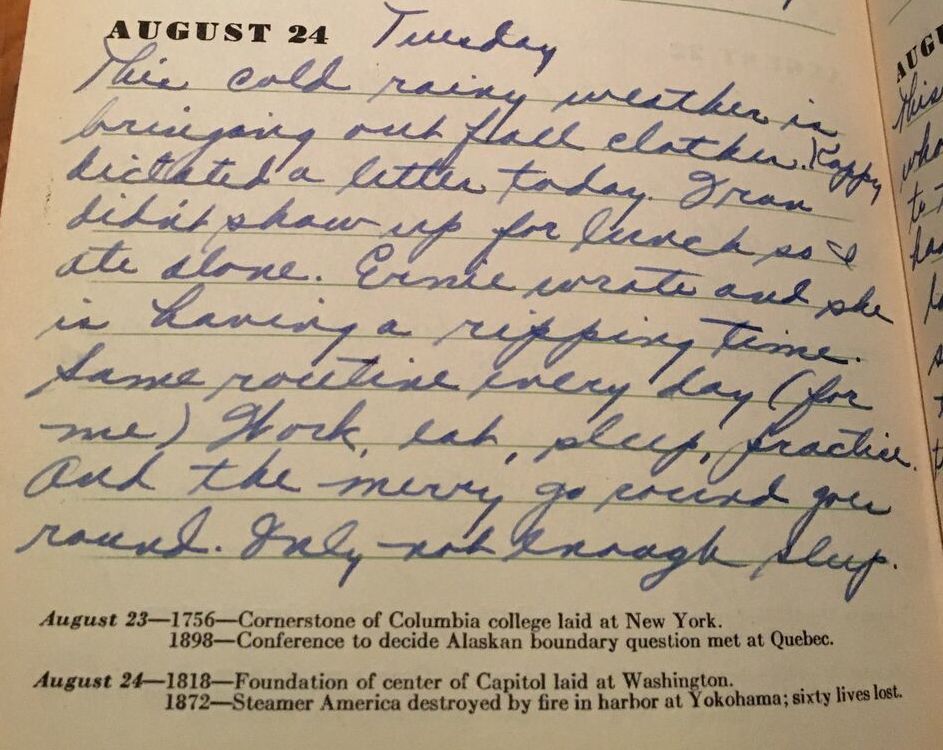 AUGUST 24 Tuesday
This cold rainy weather is
bringing out fall clothes. Kappy
dictated a letter today. Fran
didn't show up for lunch so I
ate alone. Ernie wrote and she
is having a ripping time.
Same routine every day (for
me) Work, eat, sleep, practice.
And the merry go round goes
round. Only not enough sleep.
August 23—1756—Cornerstone of Columbia college laid at New York.
1898—Conference to decide Alaskan boundary question met at Quebec.
August 24—1818—Foundation of center of Capitol laid at Washington.
1872—Steamer America destroyed by fire in harbor at Yokohama; sixty lives lost.
AUGU
this
who